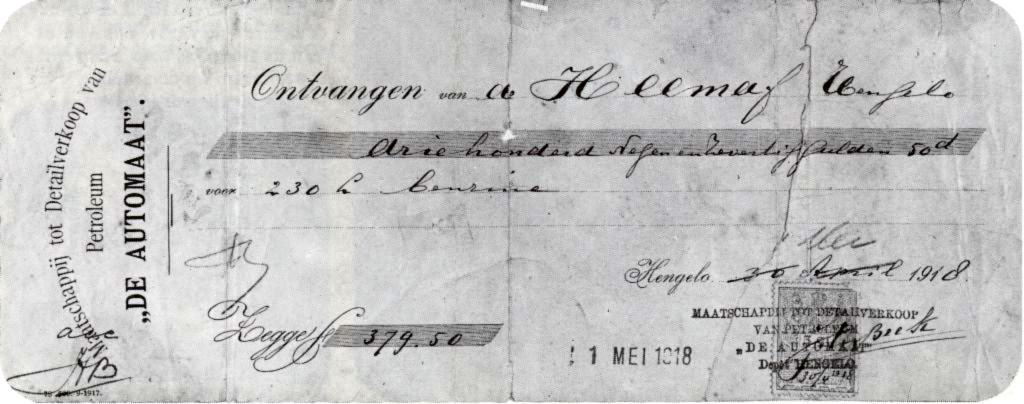 Maatschappij tot Detailverkoop van
Petroleum
„DE AUTOMAAT”.
Ontvangen van de Heemaf Hengelo
drie honderd Negen en Zeventig Gulden 50 ct
voor 230 L benzine
Mei
Hengelo 30 April 1918
Zegge f 379.50
MAATSCHAPPIJ TOT DETAILVERKOOP
VAN PETROLEUM
„DE AUTOMAAT”
Depot HENGELO.
1 MEI 1918